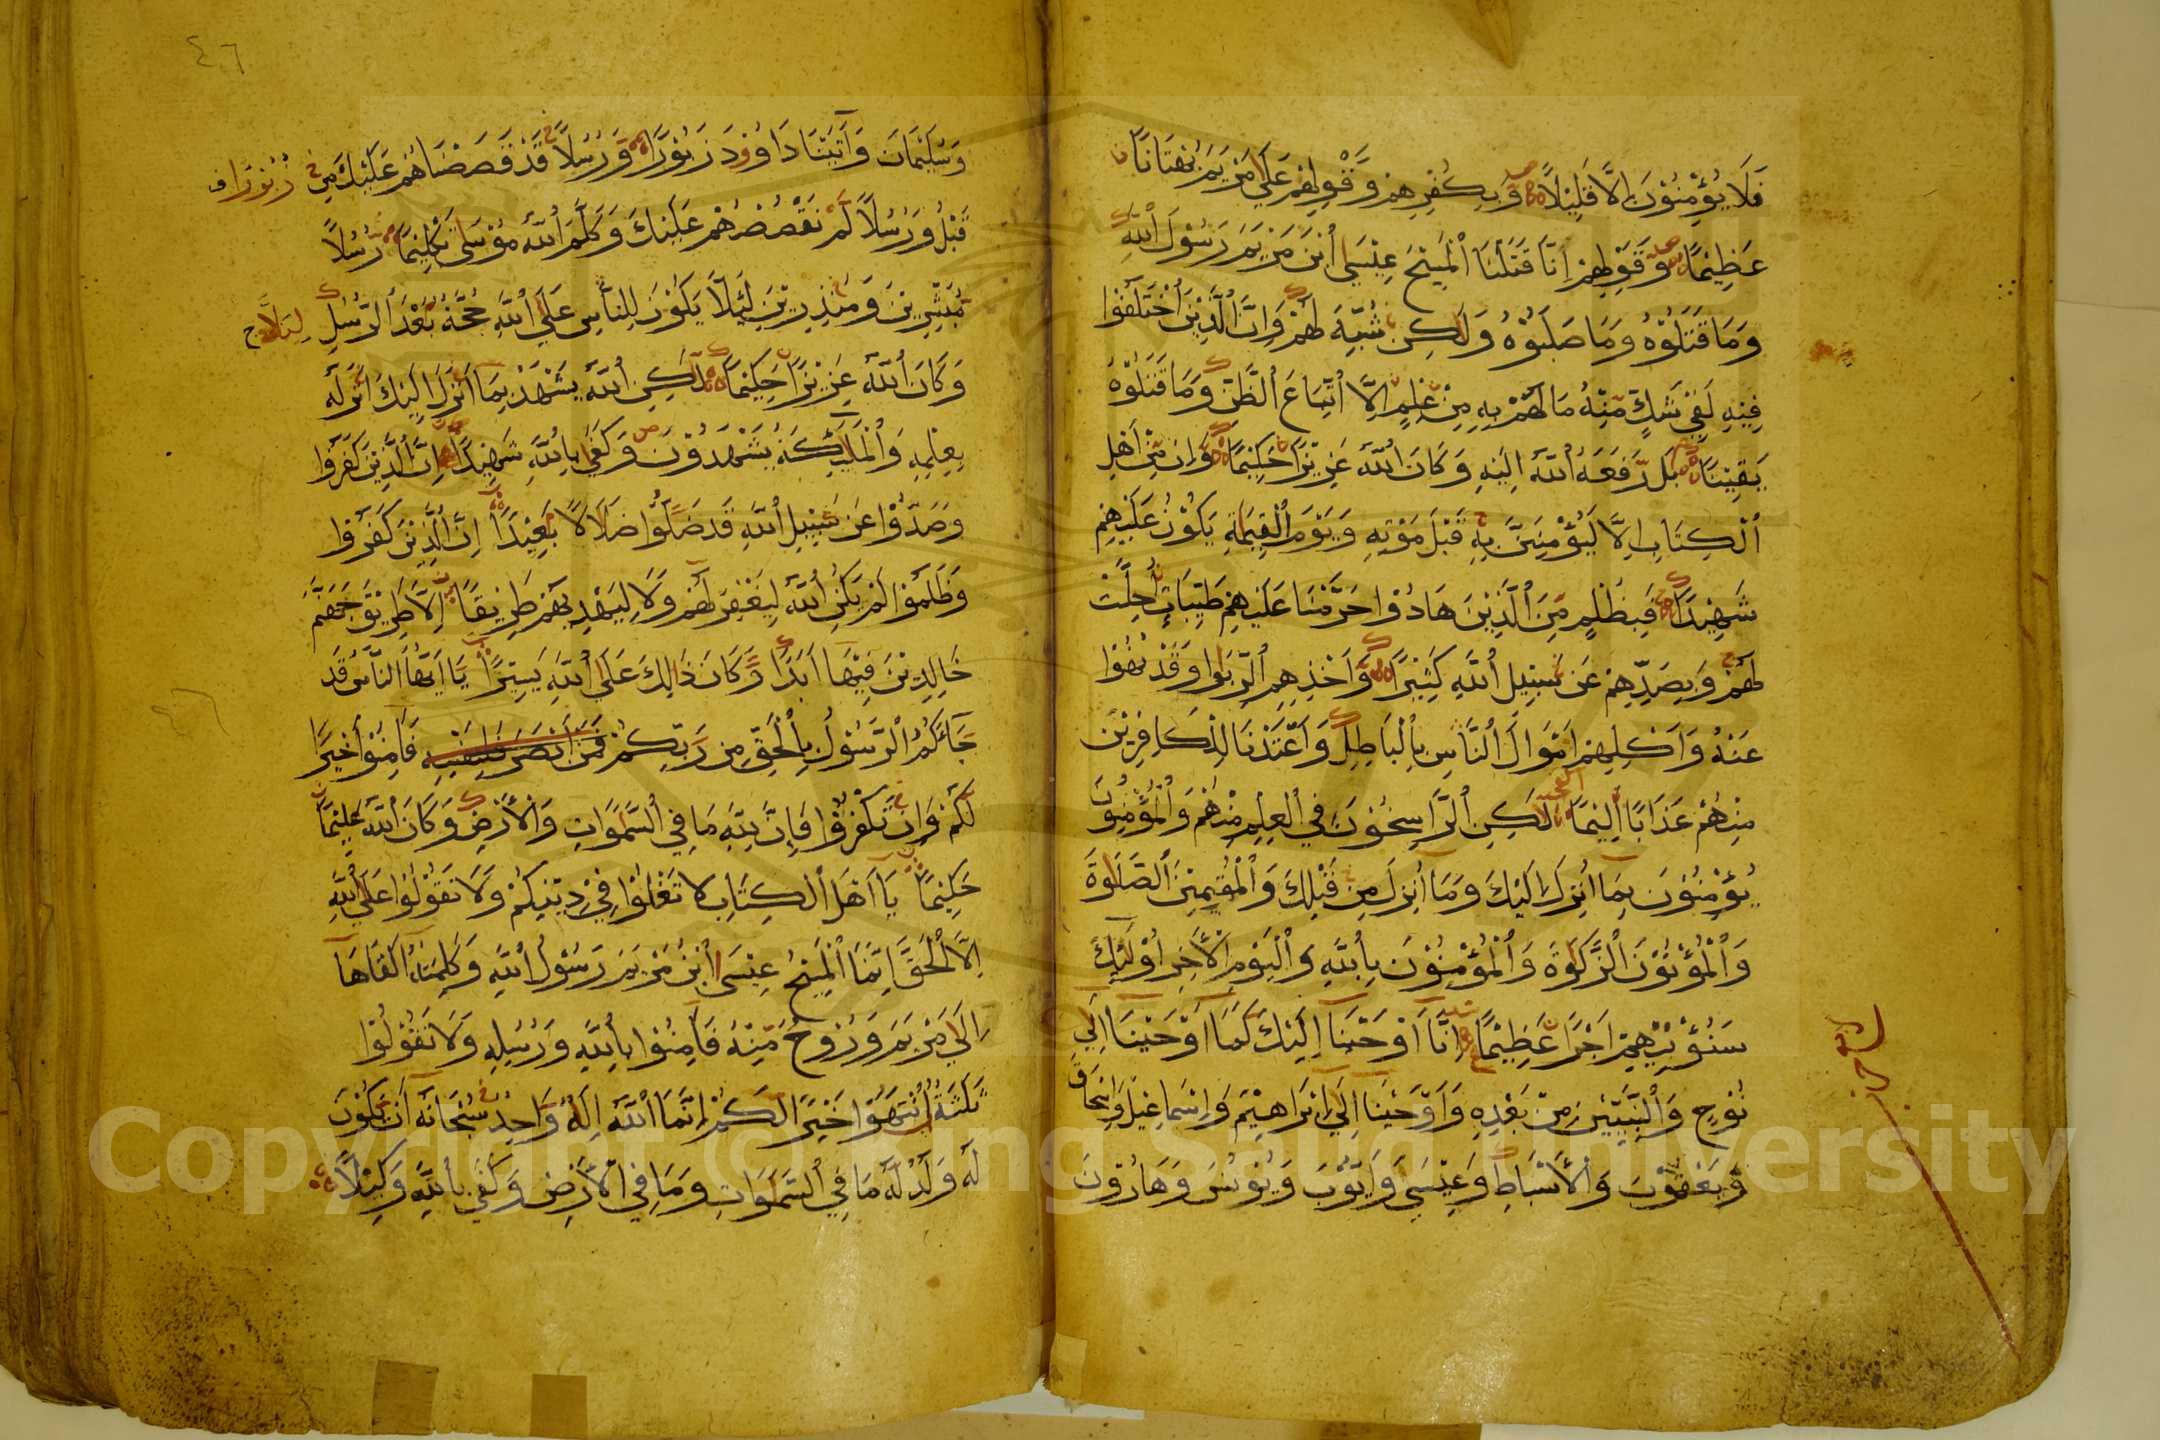 فَلَا يُؤْمِنُوْنَ اِلَّا قَلِيْلًا وَبِكُفْرِهِمْ وَقَوْلِهِمْ عَلَى مَرْيَمَ بُهْتَانًا
عَظِيْمًا وَقَوْلِهِمْ اِنَّا قَتَلْنَا الْمَسِيْحَ عِيْسَى ابْنَ مَرْيَمَ رَسُوْلَ اللّٰهِ
وَمَا قَتَلُوْهُ وَمَا صَلَبُوْهُ وَلٰكِنْ شُبِّهَ لَهُمْ وَاِنَّ الَّذِيْنَ اخْتَلَفُوْا
فِيْهِ لَفِيْ شَكٍّ مِنْهُ مَا لَهُمْ بِهِ مِنْ عِلْمٍ اِلَّا اتِّبَاعَ الظَّنِّ وَمَا قَتَلُوْهُ
يَقِيْنًا بَلْ رَفَعَهُ اللّٰهُ اِلَيْهِ وَكَانَ اللّٰهُ عَزِيْزًا حَكِيْمًا وَاِنْ مِنْ اَهْلِ
الْكِتَابِ اِلَّا لَيُؤْمِنَنَّ بِهِ قَبْلَ مَوْتِهِ وَيَوْمَ الْقِيٰمَةِ يَكُوْنُ عَلَيْهِمْ
شَهِيْدًا فَبِظُلْمٍ مِنَ الَّذِيْنَ هَادُوْا حَرَّمْنَا عَلَيْهِمْ طَيِّبَاتٍ اُحِلَّتْ
لَهُمْ وَبِصَدِّهِمْ عَنْ سَبِيْلِ اللّٰهِ كَثِيْرًا وَاَخْذِهِمِ الرِّبٰوا وَقَدْ نُهُوْا
عَنْهُ وَاَكْلِهِمْ اَمْوَالَ النَّاسِ بِالْبَاطِلِ وَاَعْتَدْنَا لِلْكَافِرِيْنَ
مِنْهُمْ عَذَابًا اَلِيْمًا لٰكِنِ الرَّاسِخُوْنَ فِي الْعِلْمِ مِنْهُمْ وَالْمُؤْمِنُوْنَ
يُؤْمِنُوْنَ بِمَا اُنْزِلَ اِلَيْكَ وَمَا اُنْزِلَ مِنْ قَبْلِكَ وَالْمُقِيْمِيْنَ الصَّلٰوةَ
وَالْمُؤْتُوْنَ الزَّكٰوةَ وَالْمُؤْمِنُوْنَ بِاللّٰهِ وَالْيَوْمِ الْاٰخِرِ اُوْلٰئِكَ
سَنُؤْتِيْهِمْ اَجْرًا عَظِيْمًا اِنَّا اَوْحَيْنَا اِلَيْكَ كَمَا اَوْحَيْنَا اِلَى
نُوْحٍ وَالنَّبِيّٖنَ مِنْ بَعْدِهِ وَاَوْحَيْنَا اِلَى اِبْرَاهِيْمَ وَاِسْمَاعِيْلَ وَاِسْحَاقَ
وَيَعْقُوْبَ وَالْاَسْبَاطِ وَعِيْسَى وَاَيُّوْبَ وَيُوْنُسَ وَهَارُوْنَ
٤٦
وَسُلَيْمَانَ وَاٰتَيْنَا دَاوُوْدَ زَبُوْرًا وَرُسُلًا قَدْ قَصَصْنَاهُمْ عَلَيْكَ مِنْ
زُبُوْرًا ف
قَبْلُ وَرُسُلًا لَمْ نَقْصُصْهُمْ عَلَيْكَ وَكَلَّمَ اللّٰهُ مُوْسَى تَكْلِيْمًا رُسُلًا
مُبَشِّرِيْنَ وَمُنْذِرِيْنَ لِئَلَّا يَكُوْنَ لِلنَّاسِ عَلَى اللّٰهِ حُجَّةٌ بَعْدَ الرُّسُلِ
لِيَلَّا ج
وَكَانَ اللّٰهُ عَزِيْزًا حَكِيْمًا لٰكِنِ اللّٰهُ يَشْهَدُ بِمَا اَنْزَلَ اِلَيْكَ اَنْزَلَهُ
بِعِلْمِهِ وَالْمَلٰئِكَةُ يَشْهَدُوْنَ وَكَفَى بِاللّٰهِ شَهِيْدًا اِنَّ الَّذِيْنَ كَفَرُوْا
وَصَدُّوْا عَنْ سَبِيْلِ اللّٰهِ قَدْ ضَلُّوْا ضَلَالًا بَعِيْدًا اِنَّ الَّذِيْنَ كَفَرُوْا
وَظَلَمُوْا لَمْ يَكُنِ اللّٰهُ لِيَغْفِرَ لَهُمْ وَلَا لِيَهْدِيَهُمْ طَرِيْقًا اِلَّا طَرِيْقَ جَهَنَّمَ
خَالِدِيْنَ فِيْهَا اَبَدًا وَكَانَ ذَالِكَ عَلَى اللّٰهِ يَسِيْرًا يَا اَيُّهَا النَّاسُ قَدْ
جَآءَكُمُ الرَّسُوْلُ بِالْحَقِّ مِنْ رَبِّكُمْ فَمَنْ اَبْصَرَ فَلِنَفْسِهِ فَاٰمِنُوْا خَيْرًا
لَكُمْ وَاِنْ تَكْفُرُوْا فَاِنَّ لِلّٰهِ مَا فِي السَّمٰوَاتِ وَالْاَرْضِ وَكَانَ اللّٰهُ عَلِيْمًا
حَكِيْمًا يَا اَهْلَ الْكِتَابِ لَا تَغْلُوْا فِيْ دِيْنِكُمْ وَلَا تَقُوْلُوْا عَلَى اللّٰهِ
اِلَّا الْحَقَّ اِنَّمَا الْمَسِيْحُ عِيْسَى ابْنُ مَرْيَمَ رَسُوْلُ اللّٰهِ وَكَلِمَتُهُ اَلْقَاهَا
اِلَى مَرْيَمَ وَرُوْحٌ مِنْهُ فَاٰمِنُوْا بِاللّٰهِ وَرُسُلِهِ وَلَا تَقُوْلُوْا
ثَلٰثَةٌ اِنْتَهُوْا خَيْرًا لَكُمْ اِنَّمَا اللّٰهُ اِلٰهٌ وَاحِدٌ سُبْحَانَهُ اَنْ يَكُوْنَ
لَهُ وَلَدٌ لَهُ مَا فِي السَّمٰوَاتِ وَمَا فِي الْاَرْضِ وَكَفَى بِاللّٰهِ وَكِيْلًا
Copyright © King Saud University